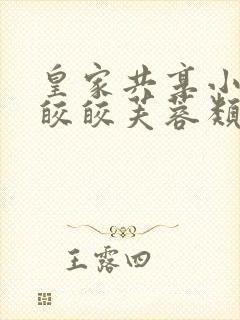 皇家共享小
皎皎芙蓉类
王露四